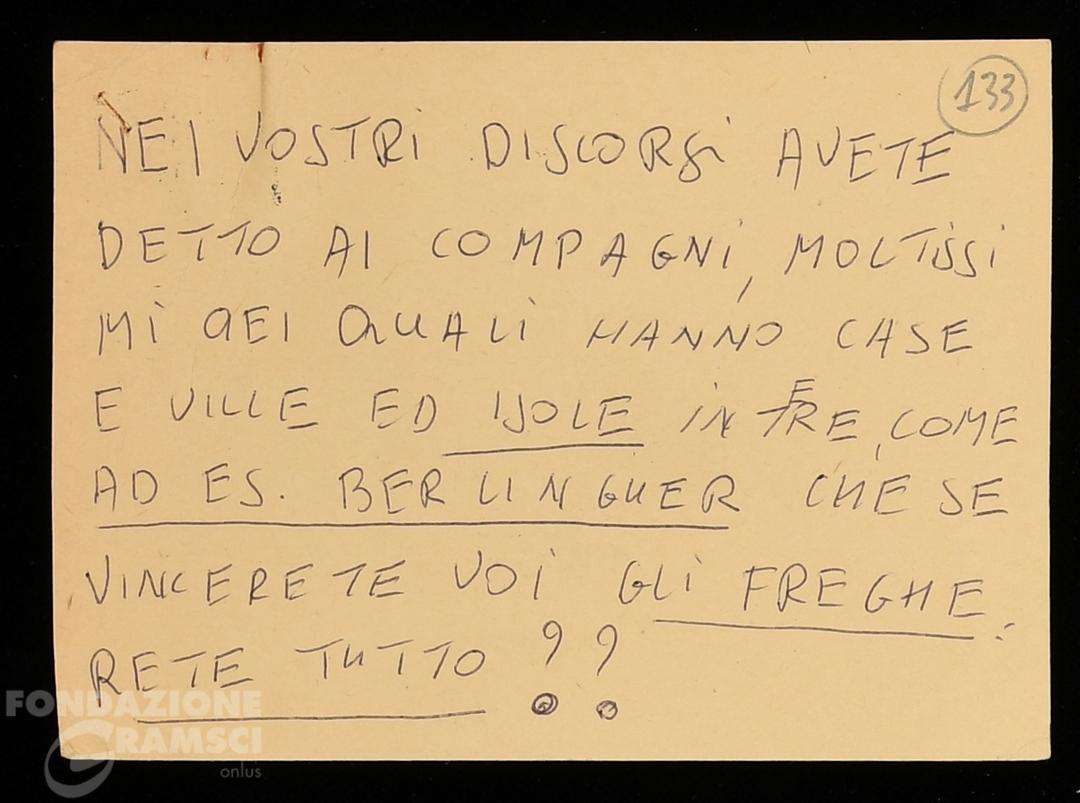 133
NEI VOSTRI DISCORSI AVETE
DETTO AI COMPAGNI, MOLTISSI
MI DEI QUALI HANNO CASE
E VILLE ED ISOLE INTERE, COME
AD ES. BERLINGUER CHE SE
VINCERETE VOI GLI FREGHE=
RETE TUTTO ??
FONDAZIONE
GRAMSCI
onlus